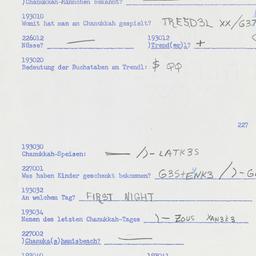 )Chanukkah-Männchen bekannt?
193010
Womit hat man an Chanukkah gespielt? TRE3D3L XX/G3
226012 193012
Nüsse? — )Trend(er)l? +
193020
Bedeutung der Buchstaben am Trendl: $ QQ
227
193030
Chanukkah-Speisen: — /)- LATK3S
227001
Was haben Kinder geschenkt bekommen? G3STENK3 /)-G
193032
An welchem Tag? FIRST NIGHT
193034
Namen des letzten Chanukkah-Tages )- ZOUS XAN3K3
227002
)Chanuka(a)hemisbesch? —